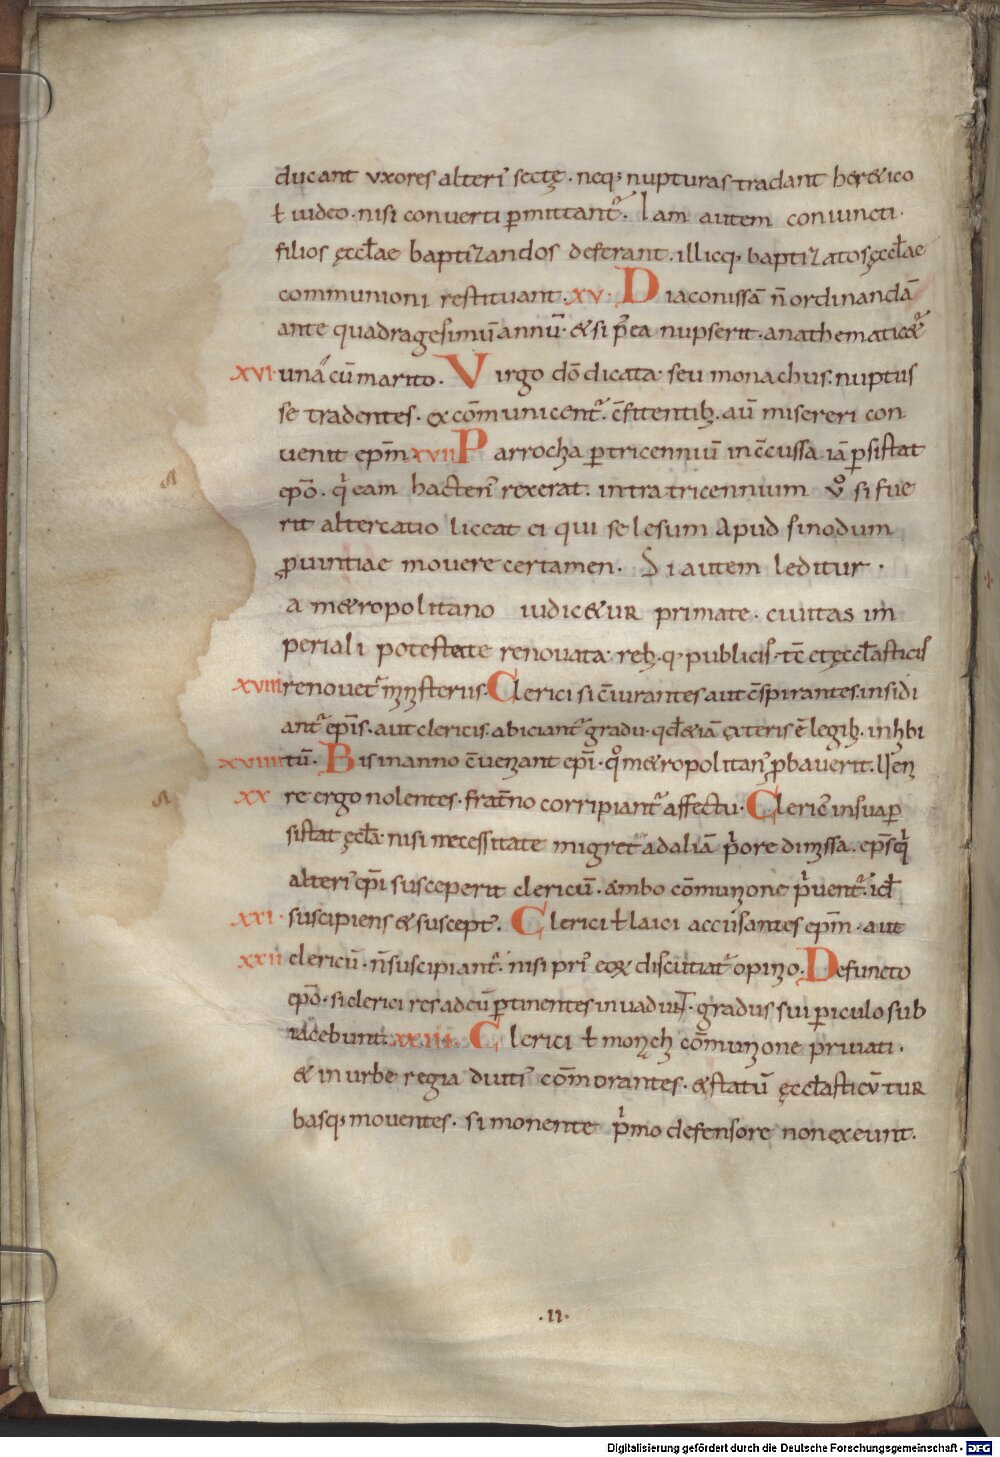 ducant uxores alteri᾽ sectę · neq; nupturas tradant heretico
ł iudeo · nisi converti p̄mittant᷑. Iam autem coniuncti ·
filios ęccłae baptizandos deferant · illicq; baptizatos ęccłae
communioni restituant · XV · Diaconissā n̄ ordinandā
ante quadragesimū annū · & si p̄ ea nupserit · anathematic&᷑
XVI · una cū marito · Virgo dō dicata · seu monachus · nuptus
se tradentes · excōmunicent᷑ · c̄fitentib; · aū misereri con
venit ep̄m XVII Parrochia p̄ tricenniū inc̄cussa iā p̄sistat
ep̄o · q̍ eam hacten᾽ rexerat · intra tricennium v̊ si fue
rit altercatio liceat ei qui se lesum apud sinodum
ꝓvintiae movere certamen · Si autem leditur ·
a m&ropolitano iudic&ur primate · civitas im
periali potestate renovata · reb; · q; publicis · tc̄ et ęccłasticis
XVIII renovet᷑ mīsteriis · Clerici si c̄iurantes aut c̄spirantes insidi
ant᷑ ep̄is · aut clericis · abiciant᷑ gradu · qd & iā exteris ē legib; · inhibi
XVIIII tū · Bis in anno c̄veniant ep̄i · q̊ m&ropolitan᾽ ꝓbaverit · Uen
XX re ergo nolentes · frat̄no corripiant᷑ affectu · Cleric᾽ in sua p̄
sistat ęcła · nisi necessitate migret ad aliā p̍ore dimissa · ep̄s q̍
alteri᾽ ep̄i susceperit clericū · ambo cōmunione p̍vent᷑ · id ł
XXI · suscipiens & suscept᾽ · Clerici ł laici accusantes ep̄m · aut
XXII clericū · n̄ suscipiant᷑ · nisi pri᾽ eoꝝ discutiat᷑ opinio · Defuncto
ep̄o · si clerici res ad eū p̄tinentes invadunt · gradus sui p̄iculo sub
iacebunt · XXIII · Clerici ł monach cōmunione privati ·
& in urbe regia diuti᾽ cōmorantes · & statū ęccłasticū tur
basq; moventes · si monente p̍mo defensore non exeunt ·
· 11 ·
Digitalisierung gefördert durch die Deutsche Forschungsgemeinschaft - DFG